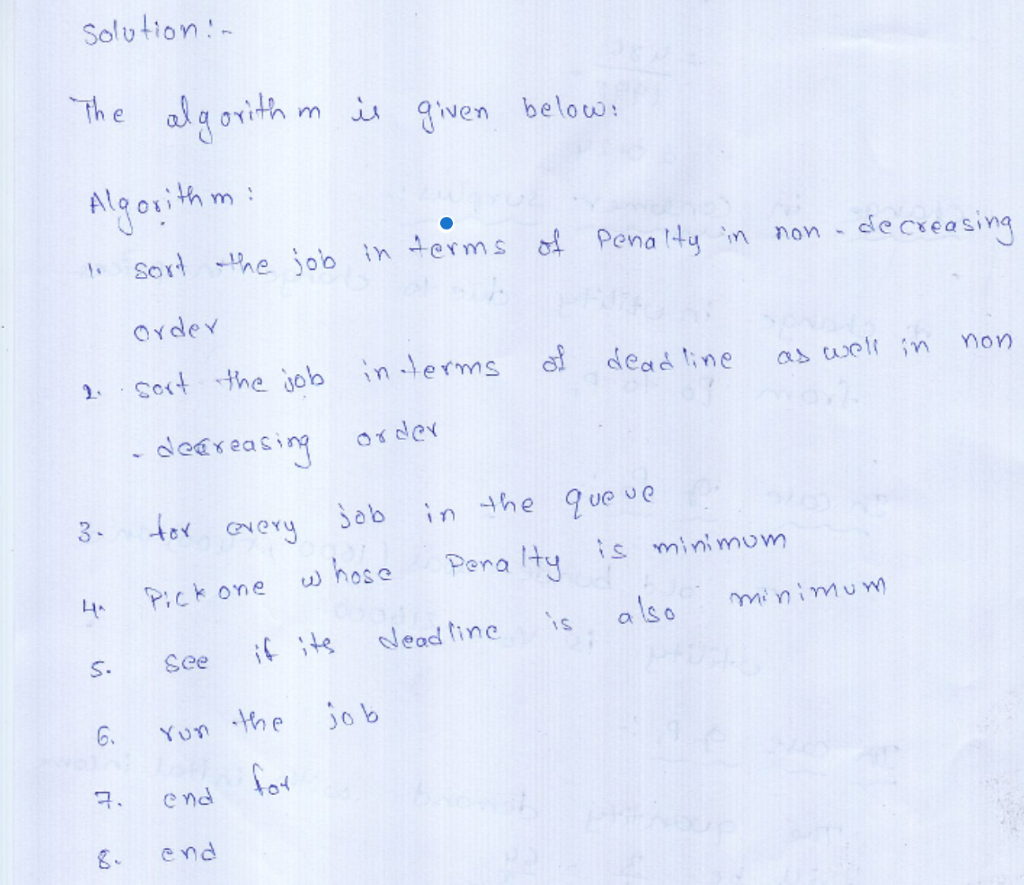 Solution:-
The algorithm is given below:
Algorithm:
1. sort the job in terms of Penalty in non-decreasing
order
2. sort the job in terms of deadline as well in non
- decreasing order
3. for every job in the queue
4. Pick one whose Penalty is minimum
5. see if its deadline is also minimum
6. run the job
7. end for
8. end